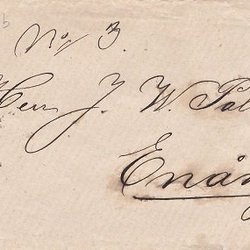 No 3.
Herr J. W. Pal
Enån